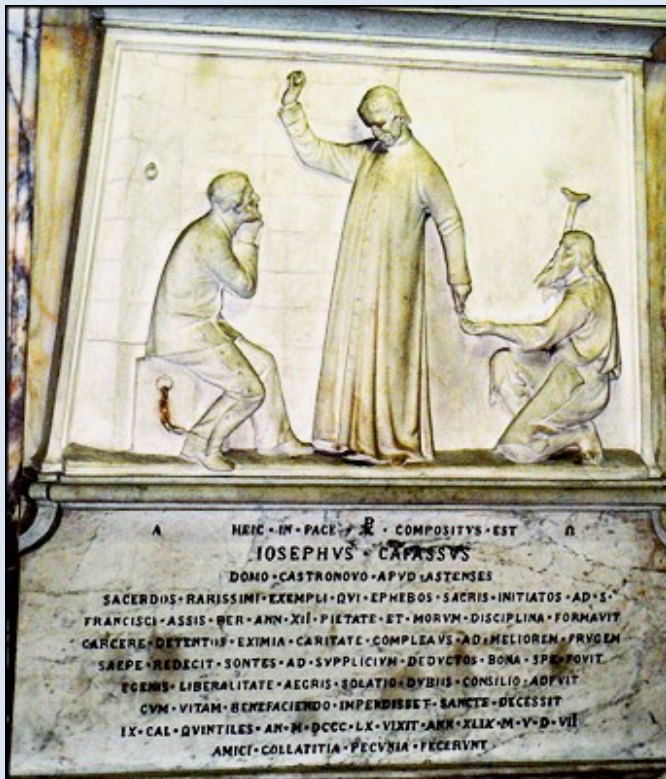 Α HEIC · IN · PACE · ☧ · COMPOSITVS · EST Ω
IOSEPHVS · CAFASSVS
DOMO · CASTRONOVO · APVD · ASTENSES
SACERDOS · RARISSIMI · EXEMPLI · QVI · EPHEBOS · SACRIS · INITIATOS · AD · S ·
FRANCISCI · ASSIS · PER · ANN · XII · PIETATE · ET · MORVM · DISCIPLINA · FORMAVIT
CARCERE · DETENTOS · EXIMIA · CARITATE · COMPLEXVS · AD · MELIOREM · FRVGEM
SAEPE · REDEGIT · SONTES · AD · SVPPLICIVM · DEDVCTOS · BONA · SPE · FOVIT
EGENIS · LIBERALITATE · AEGRIS · SOLATIO · DVBIIS · CONSILIO · ADFVIT
CVM · VITAM · BENEFACIENDO · IMPENDISSET · SANCTE · DECESSIT
IX · CAL · QVINTILES · AN · M · DCCC · LX · VIXIT · ANN · XLIX · M · V · D · VII
AMICI · COLLATITIA · PECVNIA · FECERVNT